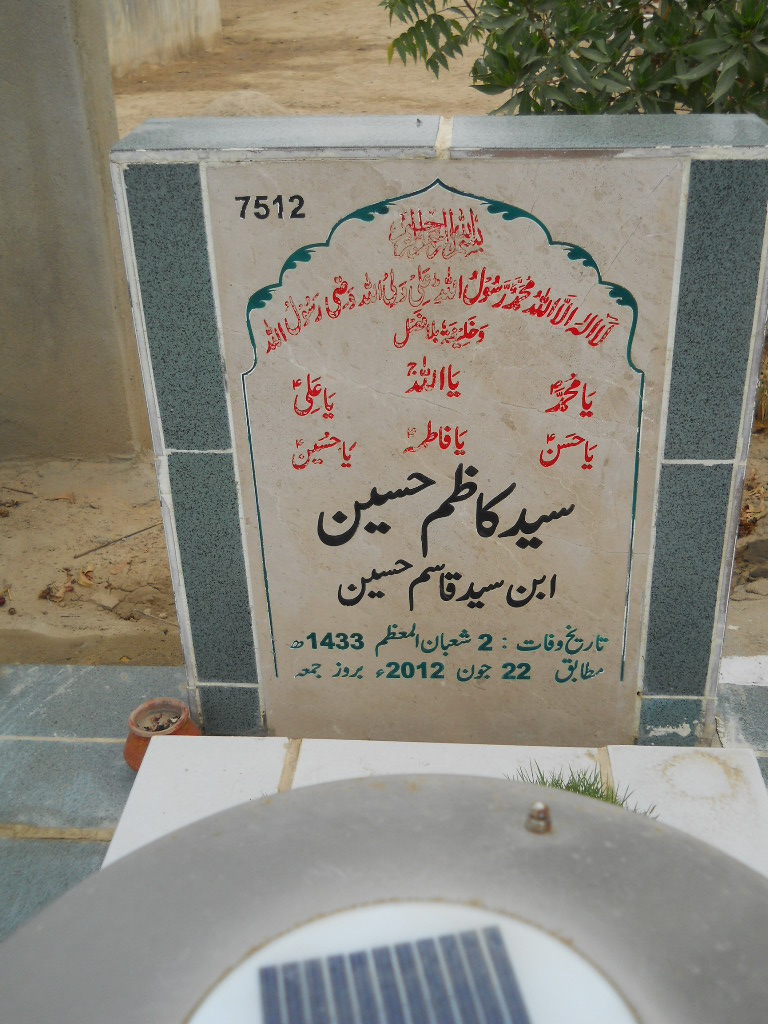 7512
بسم اللہ الرحمن الرحیم
لا الہ الا اللہ محمد رسول اللہ علی ولی اللہ وصی رسول اللہ
وخلیفتہ بلا فصل
یا محمدؐ یا اللہ یا علیؑ
یا حسنؑ یا فاطمہؑ یا حسینؑ
سید کاظم حسین
ابن سید قاسم حسین
تاریخ وفات : 2 شعبان المعظم 1433ھ
مطابق 22 جون 2012ء بروز جمعہ